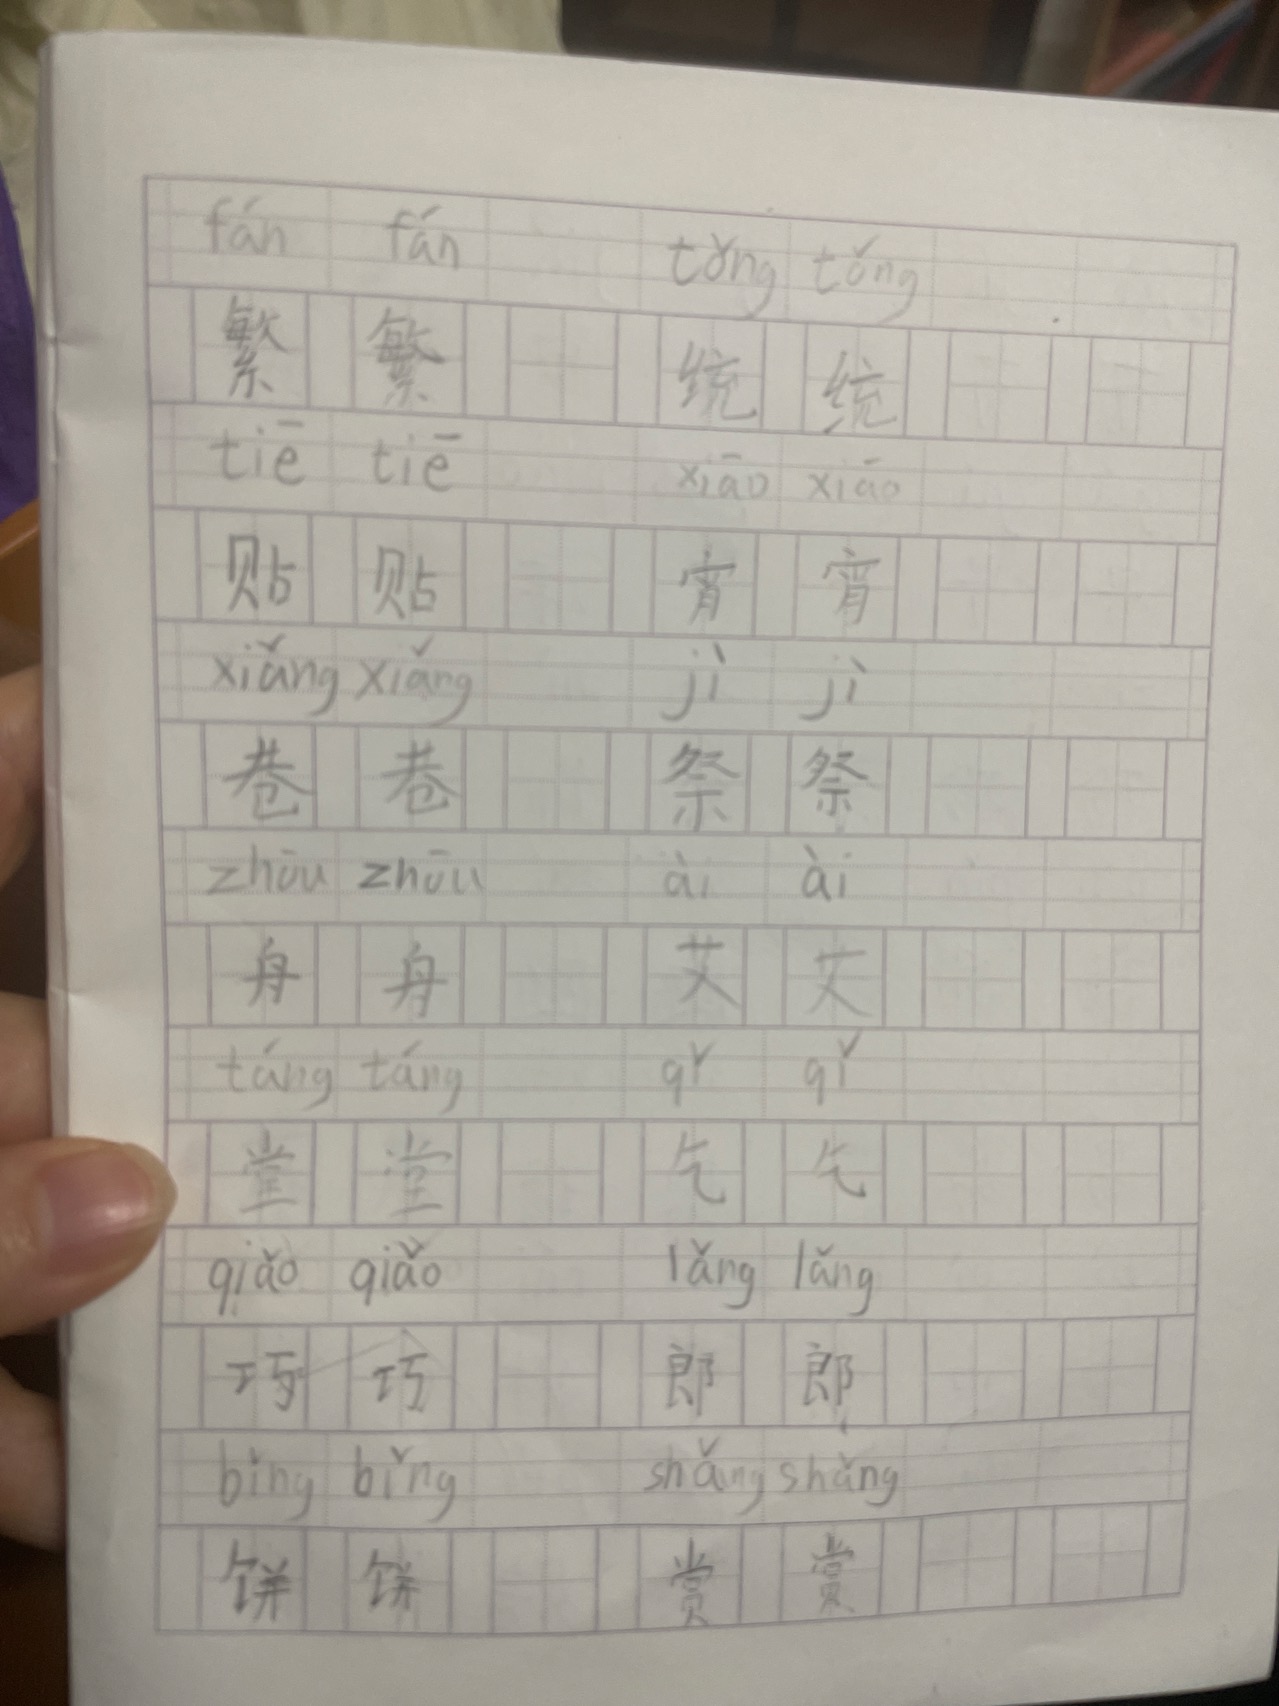 fán fán tǒng tǒng
繁 繁 统 统
tiē tiē xiāo xiāo
贴 贴 宵 宵
xiǎng xiǎng jì jì
巷 巷 祭 祭
zhōu zhōu ài ài
舟 舟 艾 艾
táng táng qǐ qǐ
堂 堂 乞 乞
qiǎo qiǎo lǎng lǎng
巧 巧 郎 郎
bǐng bǐng shǎng shǎng
饼 饼 赏 赏